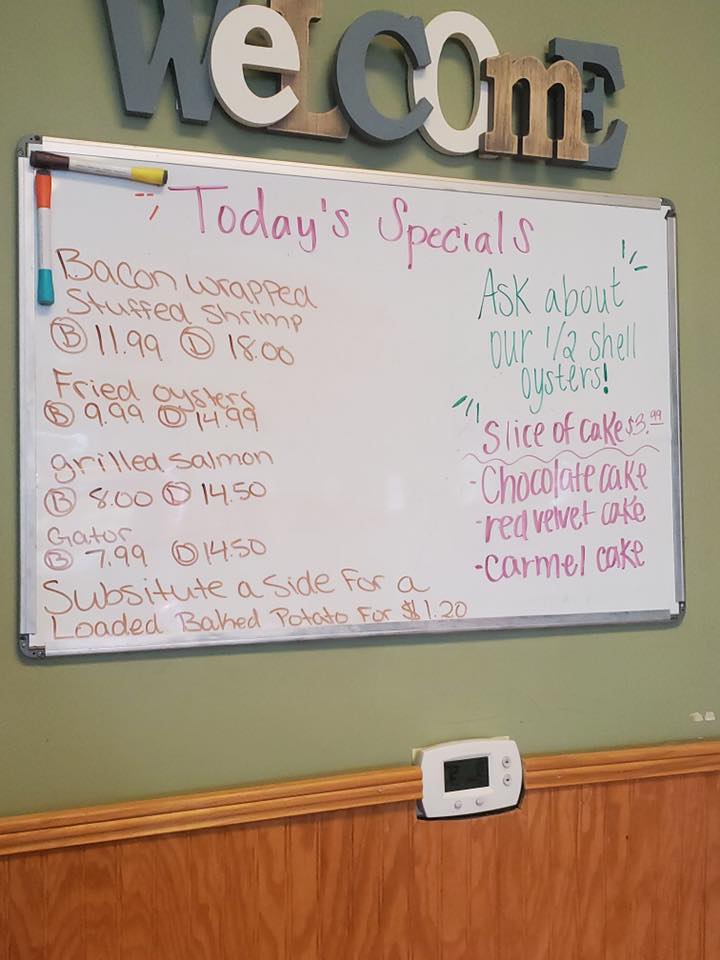 WeLCOmE
Today's Specials
Bacon wrapped
Stuffed Shrimp
B 11.99 D 18.00
Fried oysters
B 9.99 D 14.99
grilled salmon
B 8.00 D 14.50
Gator
B 7.99 D 14.50
Subsitute a Side For a
Loaded Baked Potato For $1.20
Ask about
our 1/2 shell
oysters!
Slice of cake $3.99
-Chocolate cake
-red velvet cake
-carmel cake